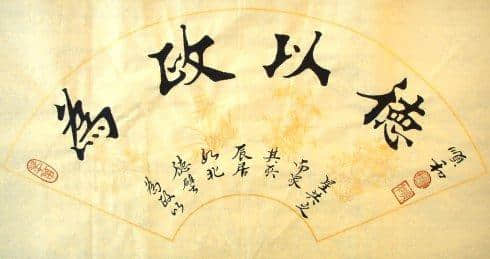 為政以德
為政以
德譬
如北
辰居
其所
而衆
星共之
順和